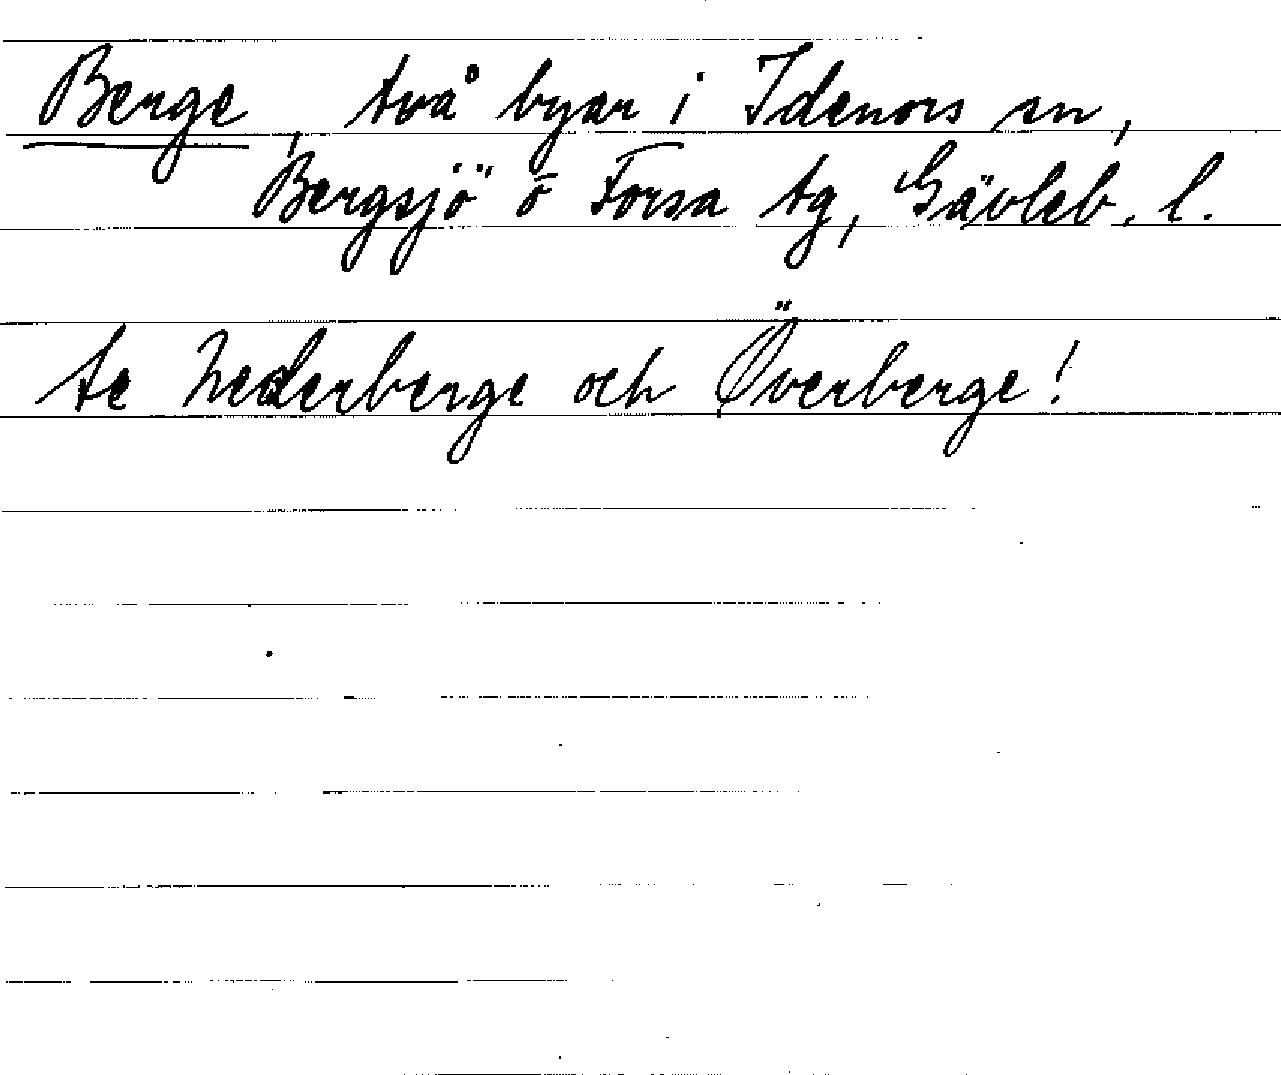 Berge, två byar i Idenors sn,
Bergsjö o Forsa tg, Gävleb. l.
se Nederberge och Överberge!